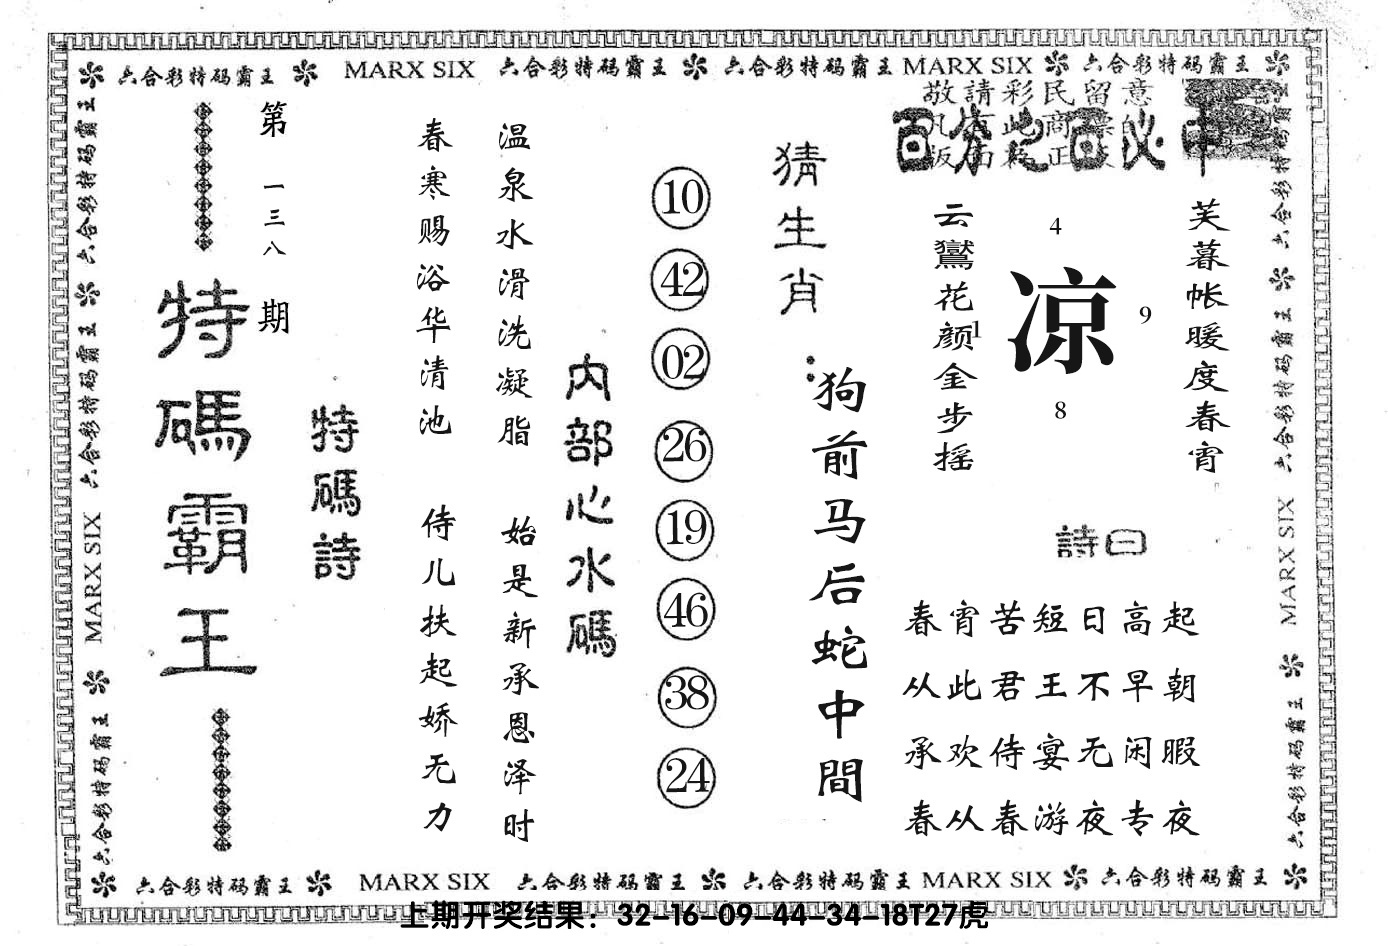 六合彩特码霸王 MARX SIX 六合彩特码霸王 六合彩特码霸王 MARX SIX 六合彩特码霸王
敬請彩民留意
百分之百必中
第一三八期
特碼霸王
特碼詩
春寒赐浴华清池
侍儿扶起娇无力
温泉水滑洗凝脂
始是新承恩泽时
内部心水碼
10
42
02
26
19
46
38
24
猜生肖:
狗前马后蛇中間
云鬢花颜金步摇
4
1
凉
9
8
芙蓉帐暖度春宵
詩曰
春宵苦短日高起
从此君王不早朝
承欢侍宴无闲暇
春从春游夜专夜
六合彩特码霸王 MARX SIX 六合彩特码霸王
六合彩特码霸王 MARX SIX 六合彩特码霸王
六合彩特码霸王 MARX SIX 六合彩特码霸王 六合彩特码霸王 MARX SIX 六合彩特码霸王
上期开奖结果：32-16-09-44-34-18T27虎